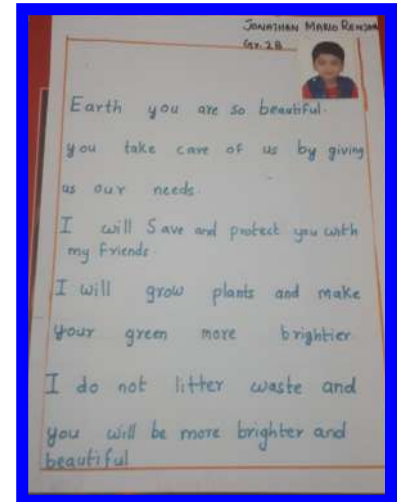 JONATHAN MARIO RENJAN
Gr. 2B
Earth you are so beautiful.
you take care of us by giving
us our needs.
I will Save and protect you with
my friends.
I will grow plants and make
your green more brightier
I do not litter waste and
you will be more brighter and
beautiful